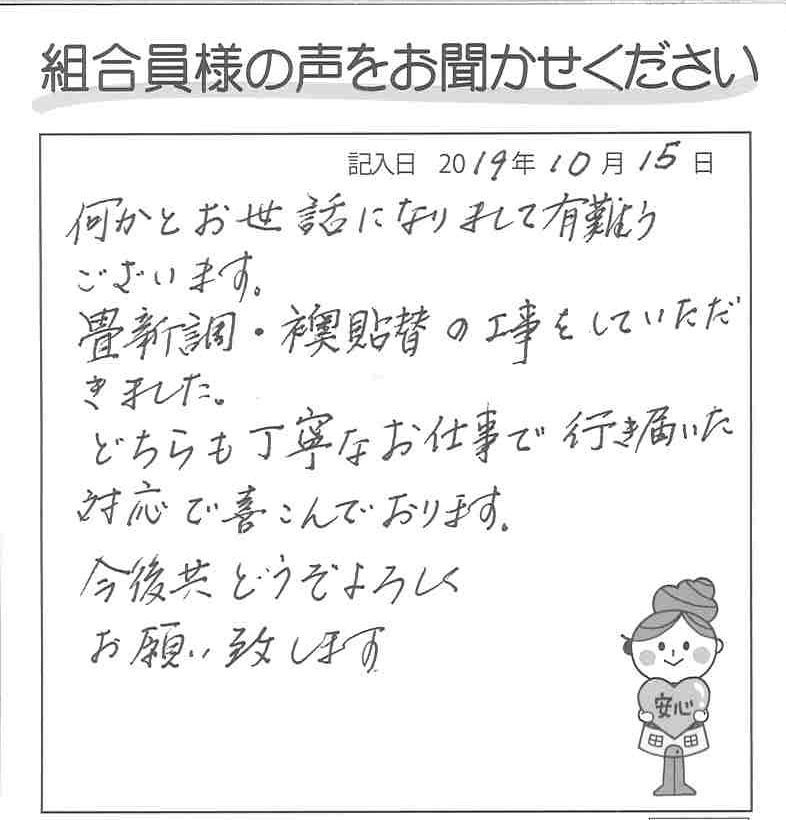 組合員様の声をお聞かせください
記入日 2019年10月15日
何かとお世話になりまして有難う
ございます。
畳新調・襖貼替の工事をしていただ
きました。
どちらも丁寧なお仕事で行き届いた
対応で喜こんでおります。
今後共どうぞよろしく
お願い致します
安心